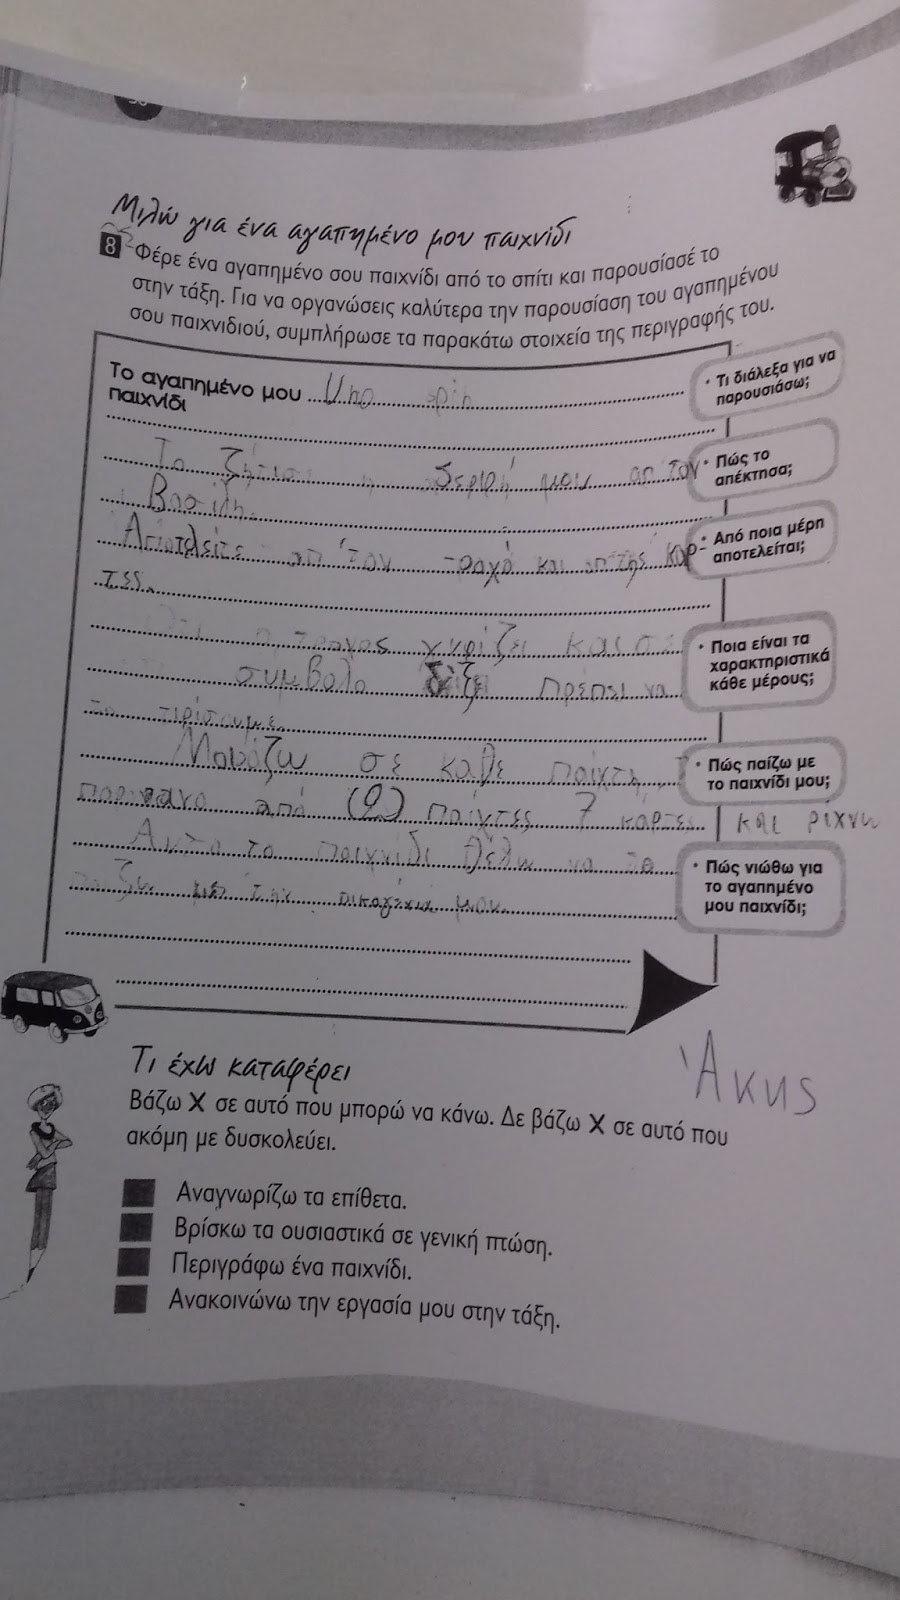 Μιλώ για ένα αγαπημένο μου παιχνίδι
8 Φέρε ένα αγαπημένο σου παιχνίδι από το σπίτι και παρουσίασέ το
στην τάξη. Για να οργανώσεις καλύτερα την παρουσίαση του αγαπημένου
σου παιχνιδιού, συμπλήρωσε τα παρακάτω στοιχεία της περιγραφής του.
Το αγαπημένο μου παιχνίδι
• Τι διάλεξα για να
παρουσιάσω;
Το μου απ'τον
• Πώς το
απέκτησα;
Βασίλη.
• Από ποια μέρη
αποτελείται;
απ'τον τροχό και απ'της καρ-
τες.
• Ποια είναι τα
χαρακτηριστικά
κάθε μέρους;
γυρίζει και
συμβολο δίζει πρέπει να
• Πώς παίζω με
το παιχνίδι μου;
Μοιράζω σε καθε παίχτη
από (2) παίχτες 7 κάρτες και ρίχνω
• Πώς νιώθω για
το αγαπημένο
μου παιχνίδι;
Αυτο το παιχνίδι θέλω να το
με την μου
Τι έχω καταφέρει
Άκης
Βάζω Χ σε αυτό που μπορώ να κάνω. Δε βάζω Χ σε αυτό που
ακόμη με δυσκολεύει.
Αναγνωρίζω τα επίθετα.
Βρίσκω τα ουσιαστικά σε γενική πτώση.
Περιγράφω ένα παιχνίδι.
Ανακοινώνω την εργασία μου στην τάξη.